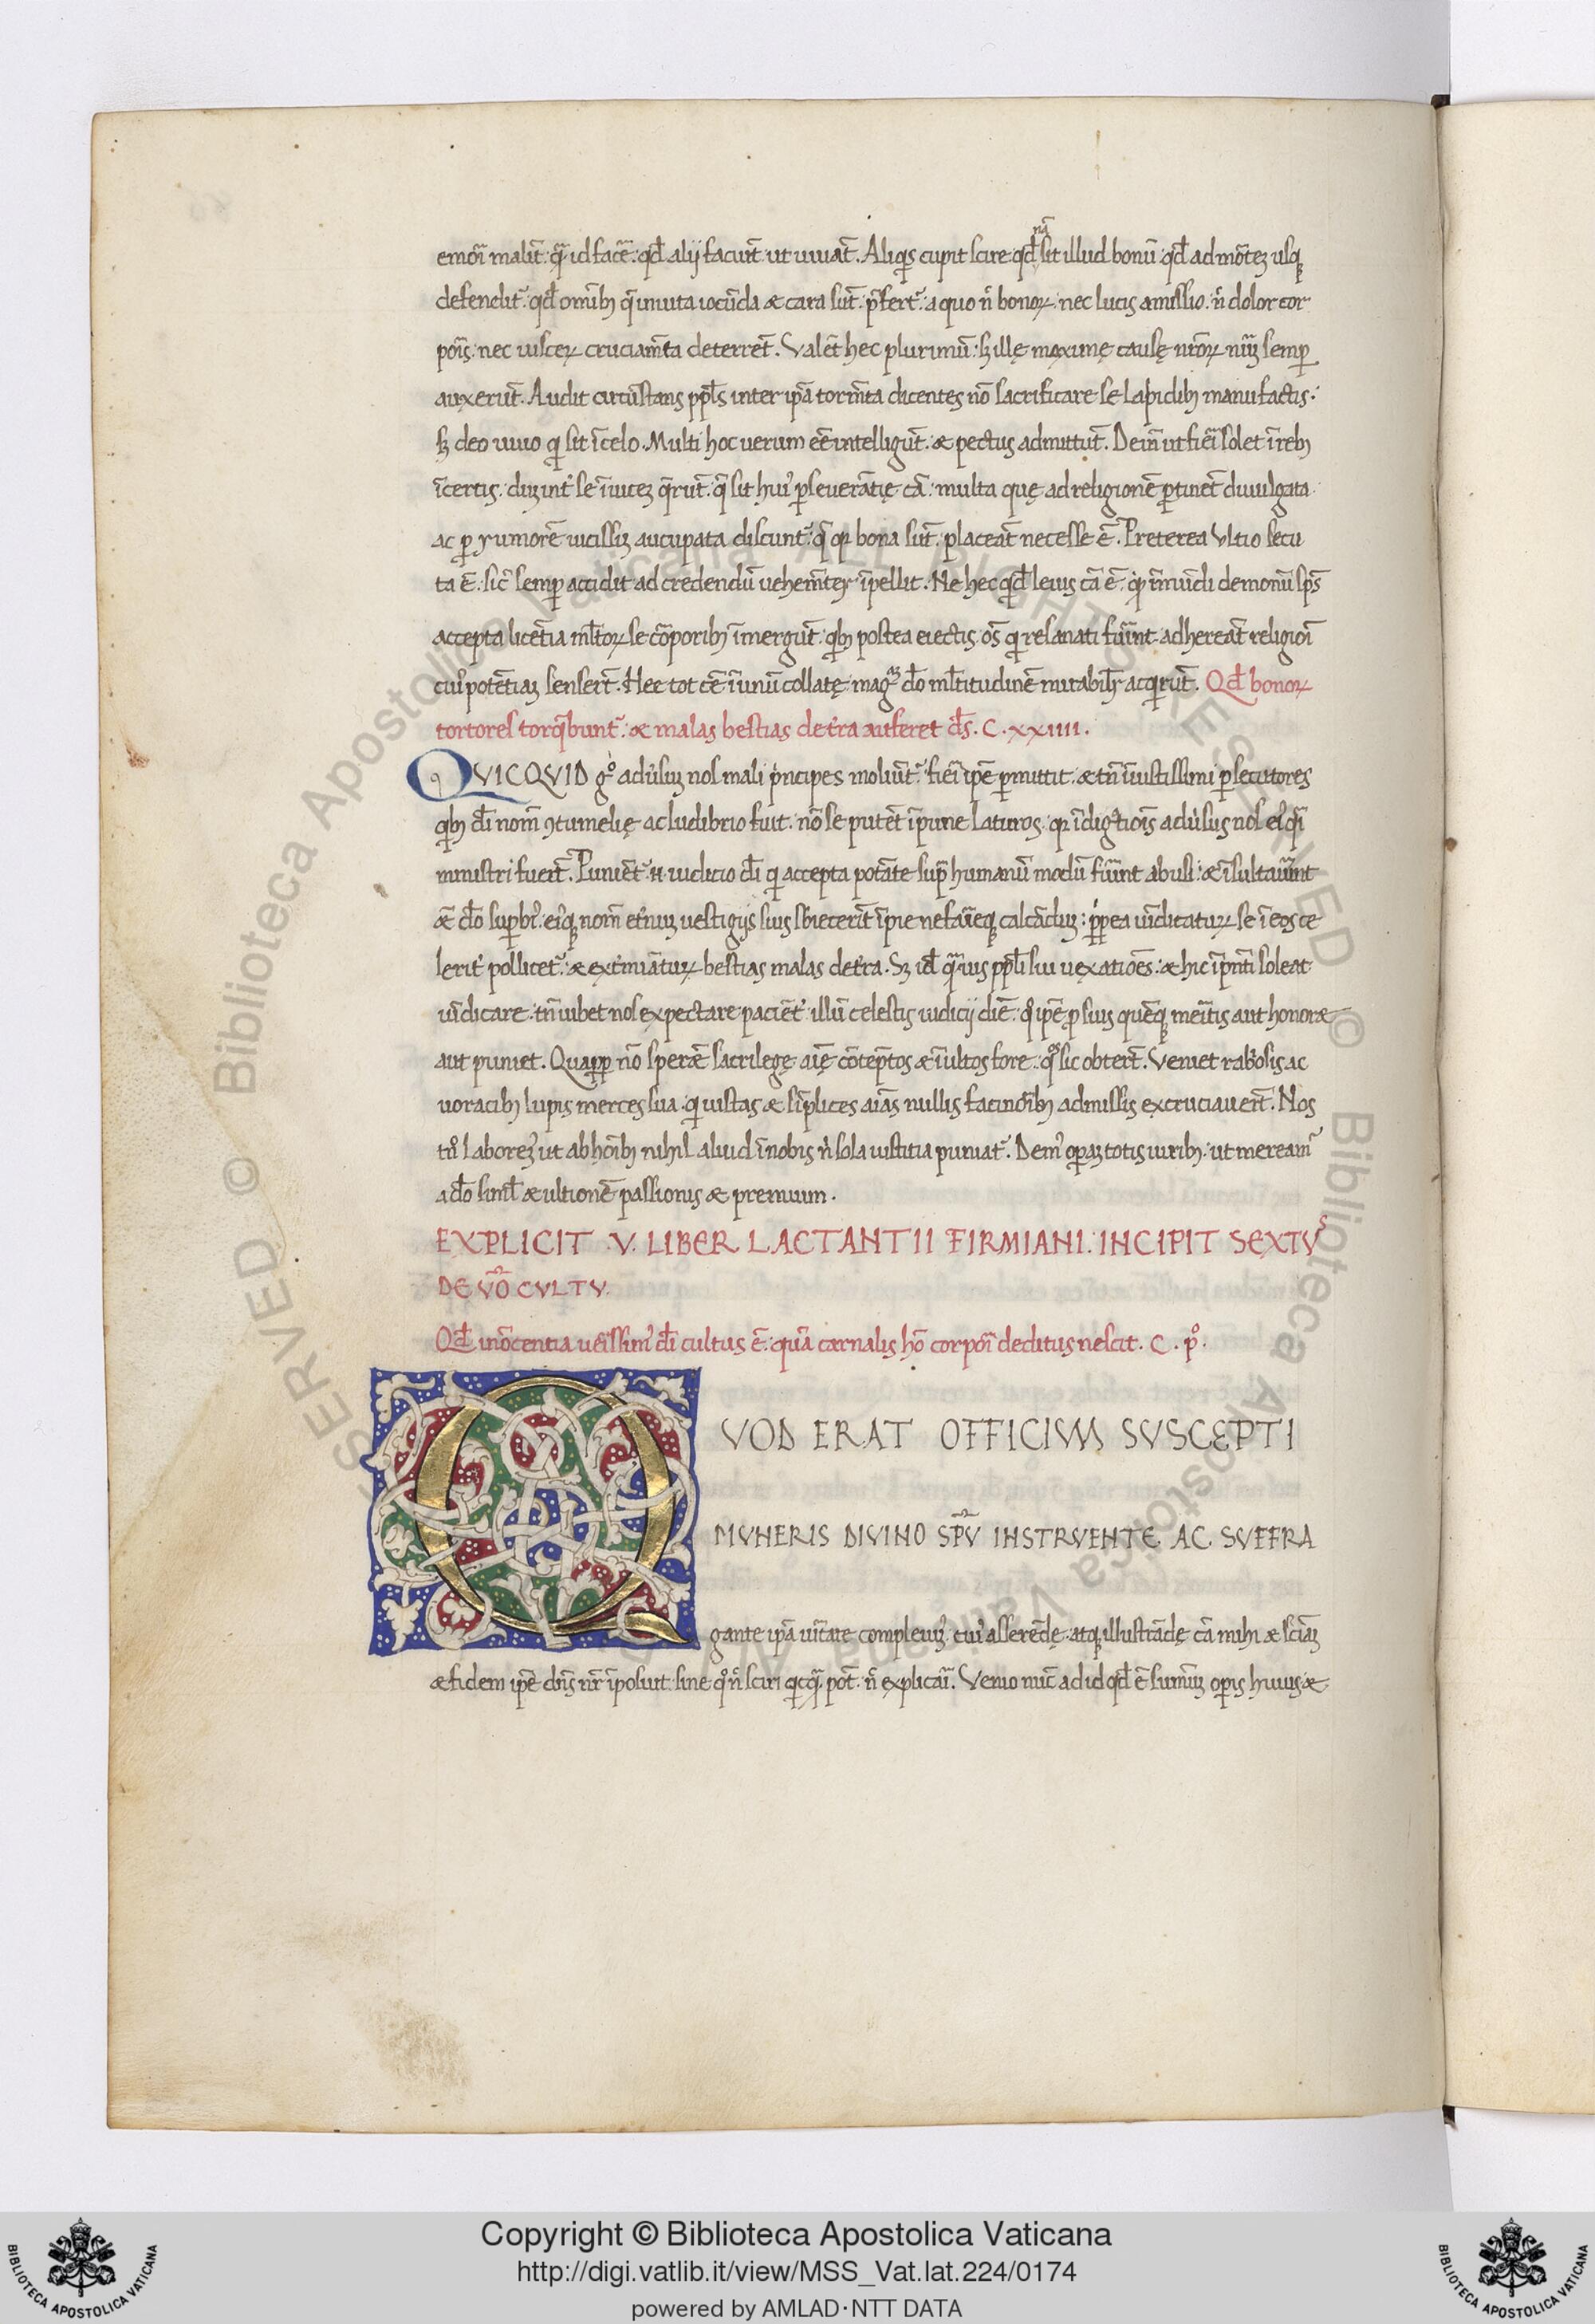 emori malit̄. quā. id facē. qd̄ alij faciūt. ut uiuāt. Aliquis cupit scire qd̄ nā sit illud bonū. qd̄ ad mortez usq;
defendit᷑. qd̄ omīb; q̄ in uita iocūda & cara sūt. p̄fert᷑. a quo n̄ bonoꝝ. nec lucis amissio. n̄ dolor cor
poris. nec uisceꝝ cruciam̄ta deterrēt. Valēt hec plurimū. sꝫ illę maxime causę nr̄oꝝ num̄ semꝑ
auxerūt. Audit circūstans ppl̄s inter ip̄a torm̄ta dicentes nō sacrificare se lapidib; manufactis.
sꝫ deo uiuo qui sit ī celo. Multi hoc uerum eē intelligūt. & pectus admittūt. Dein̄ ut fieri solet ī reb;
īcertis. duꝫ int̓ se īuicez q̄rūt. q̄ sit huiꝰ ꝑseuerātię cā. multa quę ad religionē ꝑtinēt diuulgata
ac ꝑ rumorē uicissiꝫ aucupata discunt᷑. q̄ qꝛ bona sūt. placeāt necesse ē. Preterea ultio secu
ta ē. sic̄ semꝑ accidit ad credendū uehem̄ter īpellit. Ne hec qd̄ leuis cā ē. qꝫ īmūdi demonū sp̄s
accepta licētia ml̄toꝝ se corporib; īmergūt. qb; postea eiectis. os̄ qui resanati fuer̄int. adhereāt religioī
cuiꝰ potētiaꝫ senserūt. Hee tot cē ī unū collatę. magā deo ml̄titudinē mirabil̄r acq̄rūt. Qd̄ bonoꝝ
tortores torq̄bunt᷑. & malas bestias de t̓ra auferet ds̄. C. xxiiii.
QVICQVID gͦ aduersuꝫ nos mali p̓ncipes moliūt᷑. fieri ip̄e ꝑmittit. & tn̄ iniustissimi ꝑsecutores
qb; dī nom̄ ꝯtumelię ac ludibrio fuit. nō se putēt īpune laturos. qꝛ īdignatiois aduersus nos eiꝰ q̄i
ministri fuerūt. Puniēt᷑ .n. iudicio dī qui accepta potāte sup̄ humanū modū fuerint abusi. & īsultauerint
& deo superbiꝰ. eiꝰq; nom̄ et̓nuꝫ uestigijs suis sbiecerīt īpie nefarieq; calcāduꝫ: p̄pterea uīdicaturꝫ se ī eos ce
lerit̓ pollicet᷑. & ext̓miāturꝫ bestias malas de t̓ra. Sꝫ id quāuis ppl̄i sui uexatioēs. & hic īpn̄ti soleat
uīdicare. tn̄ iubet nos expectare paciēt̓ illū celestis iudicij diē. quo ip̄e ꝑ suis quēq; meritis aut honoret
aut puniet. Quaprp̄ nō sperēt sacrilegę aīę cōtēptos & īultos fore. quos sic obterūt. Veniet rabiosis ac
uoracib; lupis merces sua. qui iustas & sīplices aīas nullis facinorib; admissis excruciauerūt. Nos
tm̄ laboremꝰ ut ab hoīb; nihil aliud ī nobis n̄ sola iustitia puniat᷑. Demꝰ operaꝫ totis uirib; ut mereamꝰ
a deo simul & ultionē passionis & premium.
EXPLICIT .V. LIBER LACTANTII FIRMIANI. INCIPIT SEXTVS
DE VO CVLTV.
Qd̄ innōcentia uerissimꝰ dī cultus ē. quā carnalis hō corpori deditus nescit. C. pͦ.
QVOD ERAT OFFICIVM SVSCEPTI
MVNERIS DIVINO SPV INSTRVENTE AC SVFFRA
gante ip̄a uitate compleuiꝰ. cuiꝰ asserēdę. atq; illustrādę cā mihi & sciaꝫ
& fidem ip̄e dn̄s nr̄ īposuit. sine quo n̄ sciri quicq̄. pōt. n̄ explicari. Venio nūc ad id qd̄ ē sūmuꝫ operis huius &
Copyright © Biblioteca Apostolica Vaticana
http://digi.vatlib.it/view/MSS_Vat.lat.224/0174
powered by AMLAD·NTT DATA
BIBLIOTECA APOSTOLICA VATICANA
BIBLIOTECA APOSTOLICA VATICANA